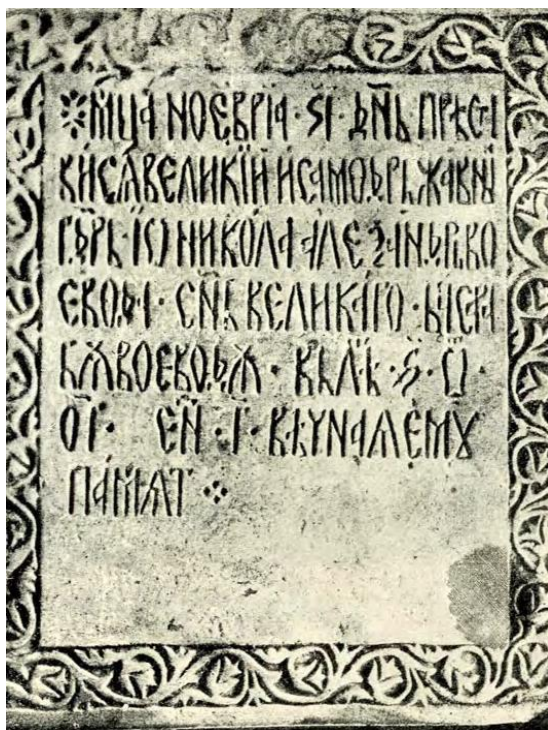 м҃ца ноеврїа · ѕ҃і · дн҃ь прѣста
ви сѧ великїй и самодрьжавнꙑ
г҃дрь · їѡ никола алеѯандрь во
евода · сн҃ь великаго · басара
бѫ воеводѫ · вь лѣ · ѕ҃ · ѡ҃ ·
ог҃ · ен҃ · г · вѣчнаѧ емꙋ
памѧт